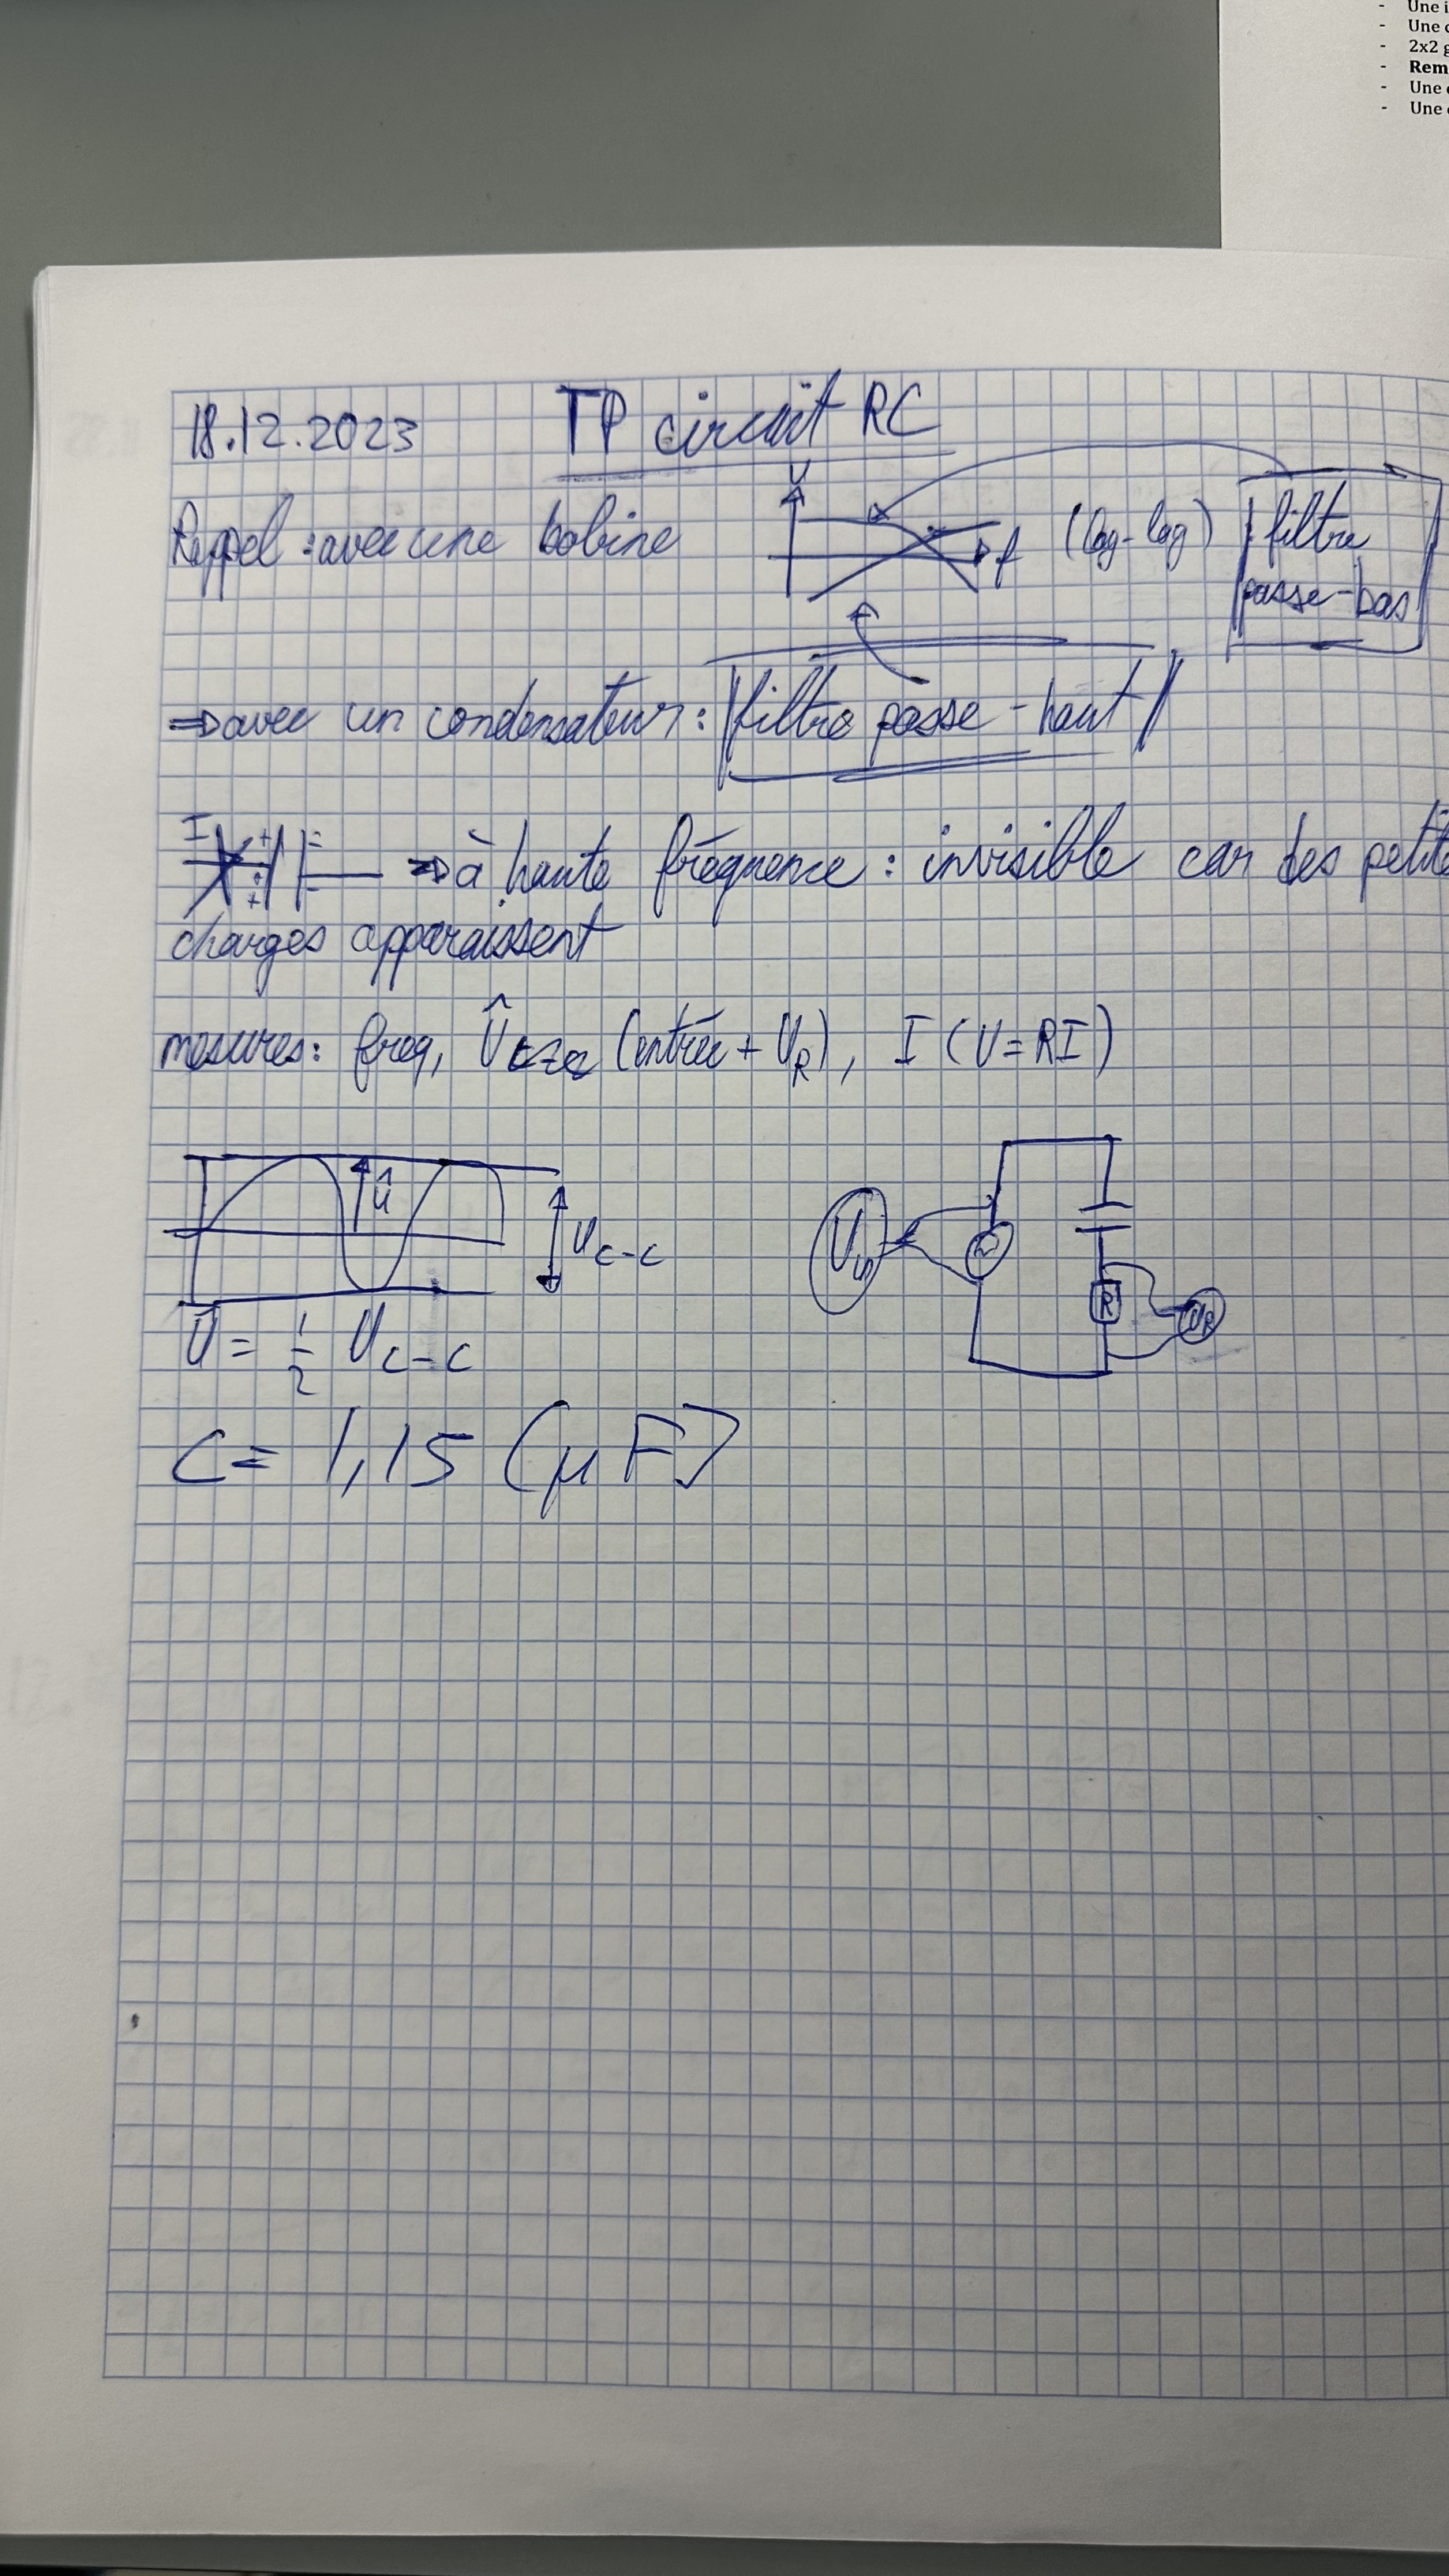 - Une i
- Une
- 2x2 g
- Rem
- Une
- Une
18.12.2023 TP circuit RC
Rappel : avec une bobine U f (log-log) filtre passe-bas
⇒ avec un condensateur : filtre passe-haut
I + - + + - ⇒ à haute fréquence : invisible car des petite
charges apparaissent
mesures : freq, Û (entrée + U_R), I (U=RI)
û U_c-c
Û = 1/2 U_c-c
U_G ~ R U_R
C = 1,15 (μF)